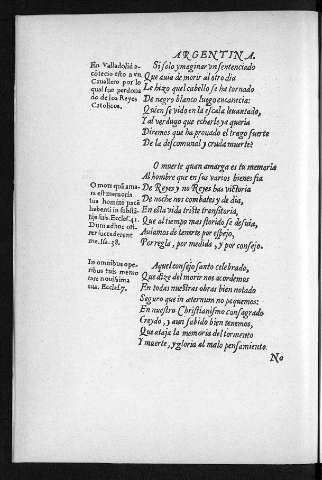 ARGENTINA.
En Valladolid a-
cōtecio esto a vn
Cauallero por lo
qual fue perdona
do de los Reyes
Catolicos.
Si solo ymaginar vn sentenciado
Que auia de morir al otro dia
Le hizo quel cabello se ha tornado
De negro blanco luego encanecia:
Quien se vido en la escala leuantado,
Y al verdugo que echarle ya queria
Diremos que ha prouado el trago fuerte
De la descomunal y cruda muerte?
O mors quā ama-
ra est memoria
tua homini pacē
habenti in substā-
tijs suis. Eccles. 41.
O muerte quan amarga es tu memoria
Al hombre que en sus varios bienes fia
De Reyes y no Reyes has victoria
De noche nos combates y de dia,
En esta vida triste transitoria,
Que al tiempo mas florido se desuia,
Auiamos de tenerte por espejo,
Por regla, por medida, y por consejo.
In omnibus ope-
ribus tuis memo
rare nouissima
tua. Eccles. 7.
Aquel consejo santo celebrado,
Que dize del morir nos acordemos
En todas nuestras obras bien notado
Seguro que in aternum no pequemos:
En nuestro Christianismo consagrado
Creydo, y aun sabido bien tenemos,
Que ataja la memoria del tormento
Y muerte, y gloria al malo pensamiento.
No